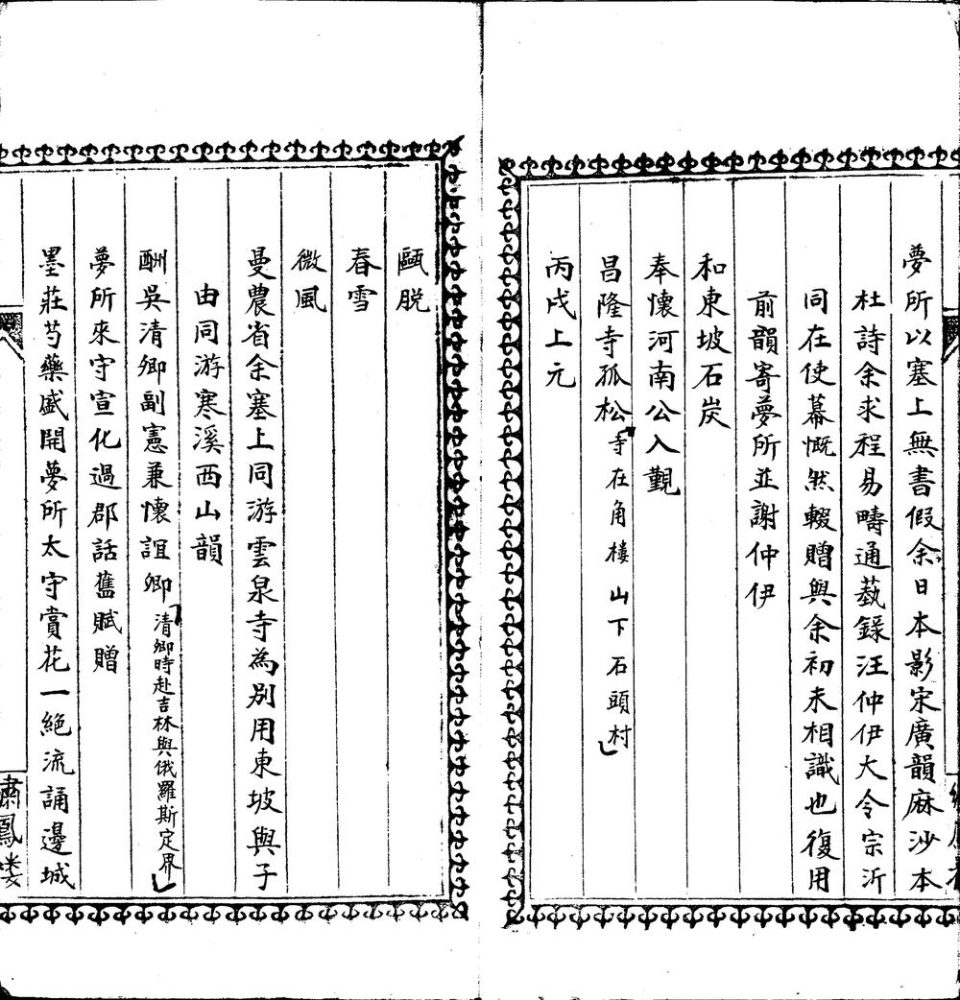 夢所以塞上無書假余日本影宋廣韻麻沙本
杜詩余求程易疇通藝錄汪仲伊大令宗沂
同在使幕慨然輟贈與余初未相識也復用
前韻寄夢所並謝仲伊
和東坡石炭
奉懷河南公入覲
昌隆寺孤松寺在角樓山下石頭村
丙戌上元
甌脱
春雪
微風
曼農省余塞上同游雲泉寺為別用東坡與子
由同游寒溪西山韻
酬吳清卿副憲兼懷誼卿清卿時赴吉林與俄羅斯定界
夢所來守宣化過郡話舊賦贈
墨莊芍藥盛開夢所太守賞花一絕流誦邊城
嘯鳳